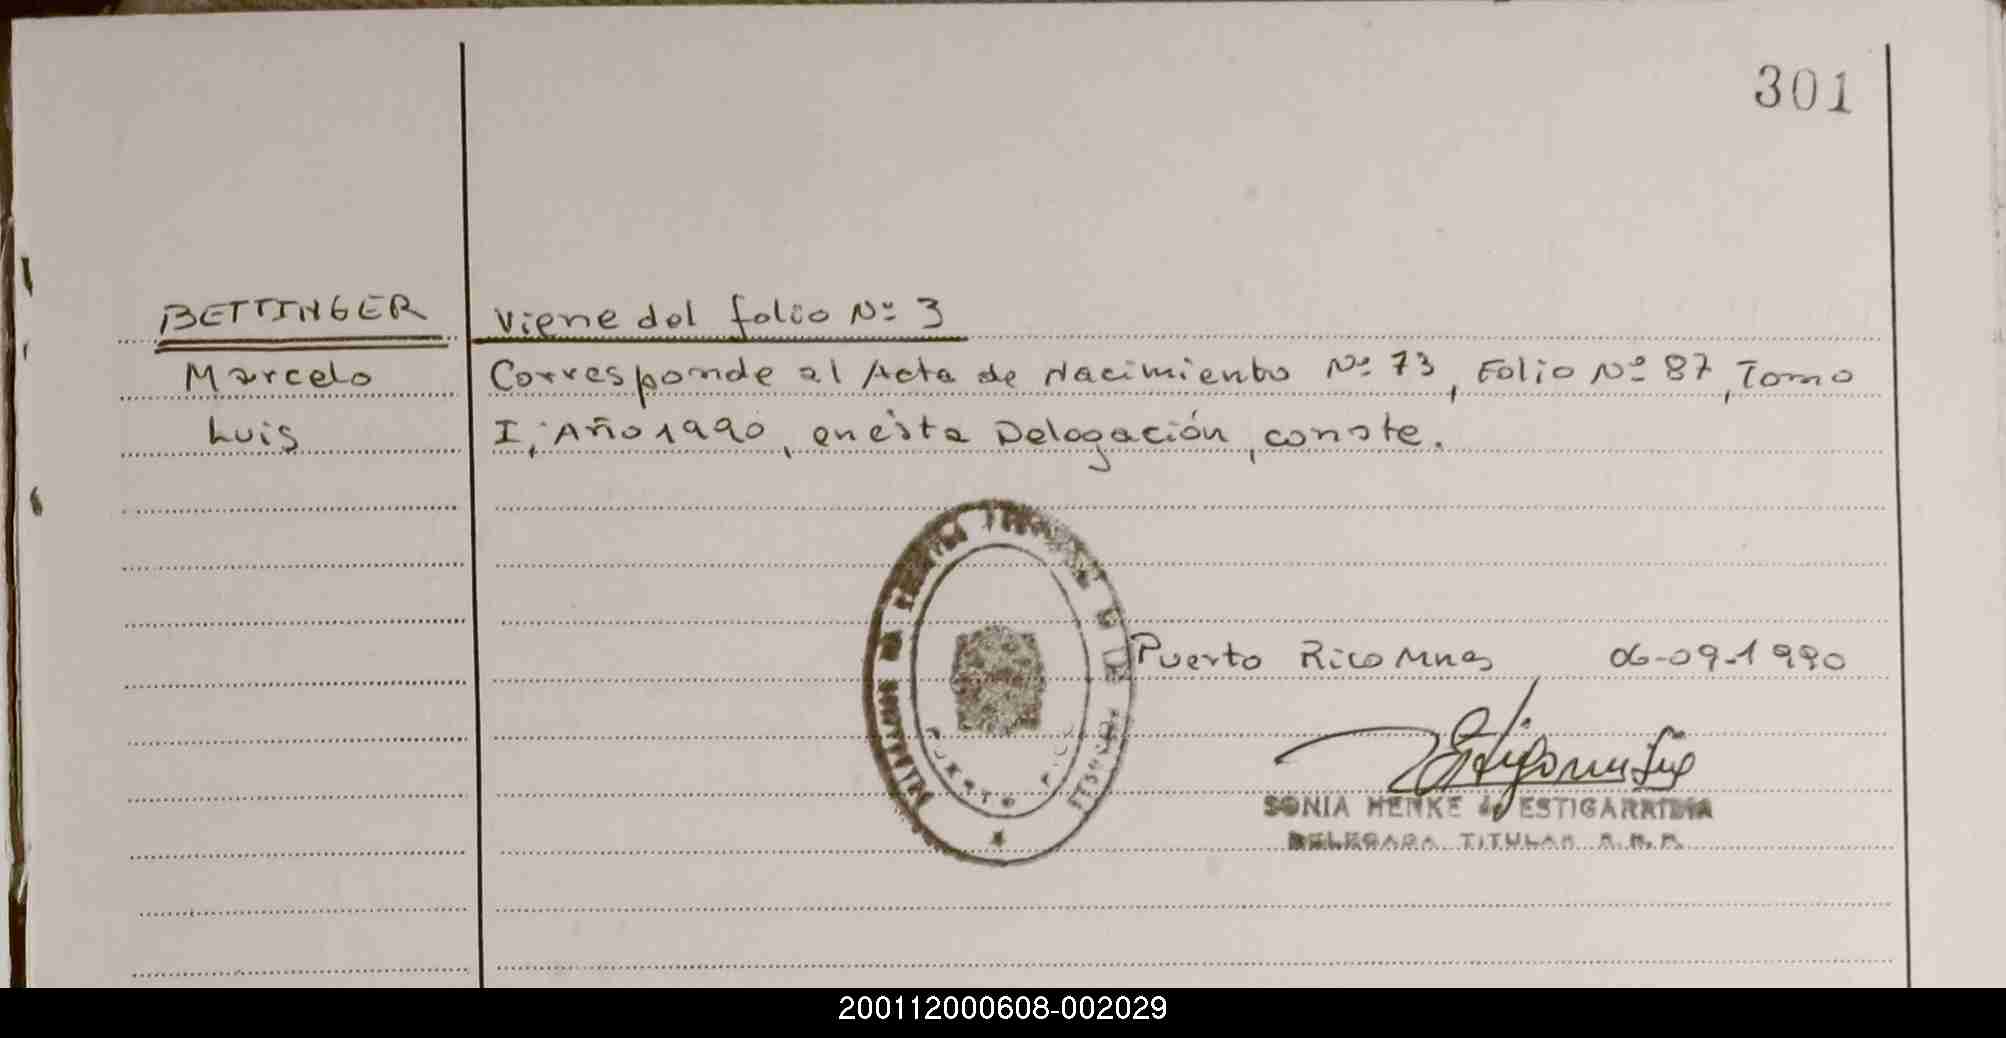 301
BETTINGER
Viene del folio Nº 3
Marcelo
Corresponde al Acta de Nacimiento Nº 73, Folio Nº 87, Tomo
Luis
I, Año 1990, en ésta Delegación, conste.
Puerto Rico Mnes 06-09-1990
SONIA HENKE de ESTIGARRIBIA
DELEGADA TITULAR R.R.P.
PUERTO RICO
200112000608-002029